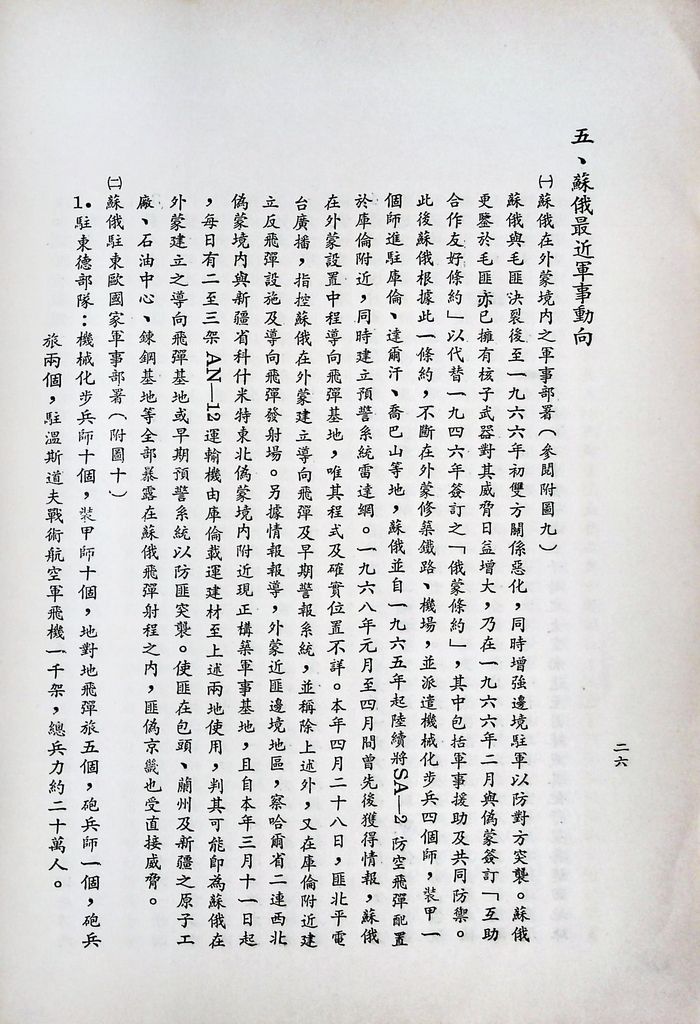 五、蘇俄最近軍事動向
㈠蘇俄在外蒙境內之軍事部署(參閱附圖九)
蘇俄與毛匪決裂後至一九六六年初雙方關係惡化，同時增強邊境駐軍以防對方突襲。蘇俄
更鑒於毛匪亦已擁有核子武器對其威脅日益增大，乃在一九六六年二月與偽蒙簽訂「互助
合作友好條約」以代替一九四六年簽訂之「俄蒙條約」，其中包括軍事援助及共同防禦。
此後蘇俄根據此一條約，不斷在外蒙修築鐵路、機場，並派遣機械化步兵四個師，裝甲一
個師進駐庫倫、達爾汗、喬巴山等地，蘇俄並自一九六五年起陸續將SA—2防空飛彈配置
於庫倫附近，同時建立預警系統雷達網。一九六八年元月至四月間曾先後獲得情報，蘇俄
在外蒙設置中程導向飛彈基地，唯其程式及確實位置不詳。本年四月二十八日，匪北平電
台廣播，指控蘇俄在外蒙建立導向飛彈及早期警報系統，並稱除上述外，又在庫倫附近建
立反飛彈設施及導向飛彈發射場。另據情報報導，外蒙近匪邊境地區，察哈爾省二連西北
偽蒙境內與新疆省科什米特東北偽蒙境內附近現正構築軍事基地，且自本年三月十一日起
，每日有二至三架AN—12運輸機由庫倫載運建材至上述兩地使用，判其可能即為蘇俄在
外蒙建立之導向飛彈基地或早期預警系統以防匪突襲。使匪在包頭、蘭州及新疆之原子工
廠、石油中心、鍊鋼基地等全部暴露在蘇俄飛彈射程之內，匪偽京畿也受直接威脅。
㈡蘇俄駐東歐國家軍事部署(附圖十)
1.駐東德部隊：機械化步兵師十個，裝甲師十個，地對地飛彈旅五個，砲兵師一個，砲兵
旅兩個，駐溫斯道夫戰術航空軍飛機一千架，總兵力約二十萬人。
二六